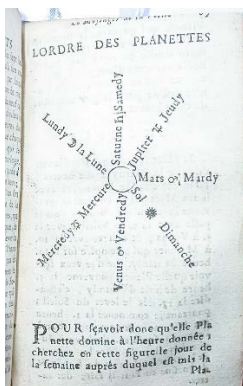 LORDRE DES PLANETTES
Saturne ♄ Samedy
Jupiter ♃ Jeudy
Mars ♂ Mardy
Sol ☀ Dimanche
Venus ♀ Vendredy
Mercredy ☿ Mercure
Lundy ☽ la Lune
POUR sçavoir donc qu'elle Pla
nette domine à l'heure donnée ;
cherchez en cette figure le jour de
la semaine auprés duquel est mis la
Pla-